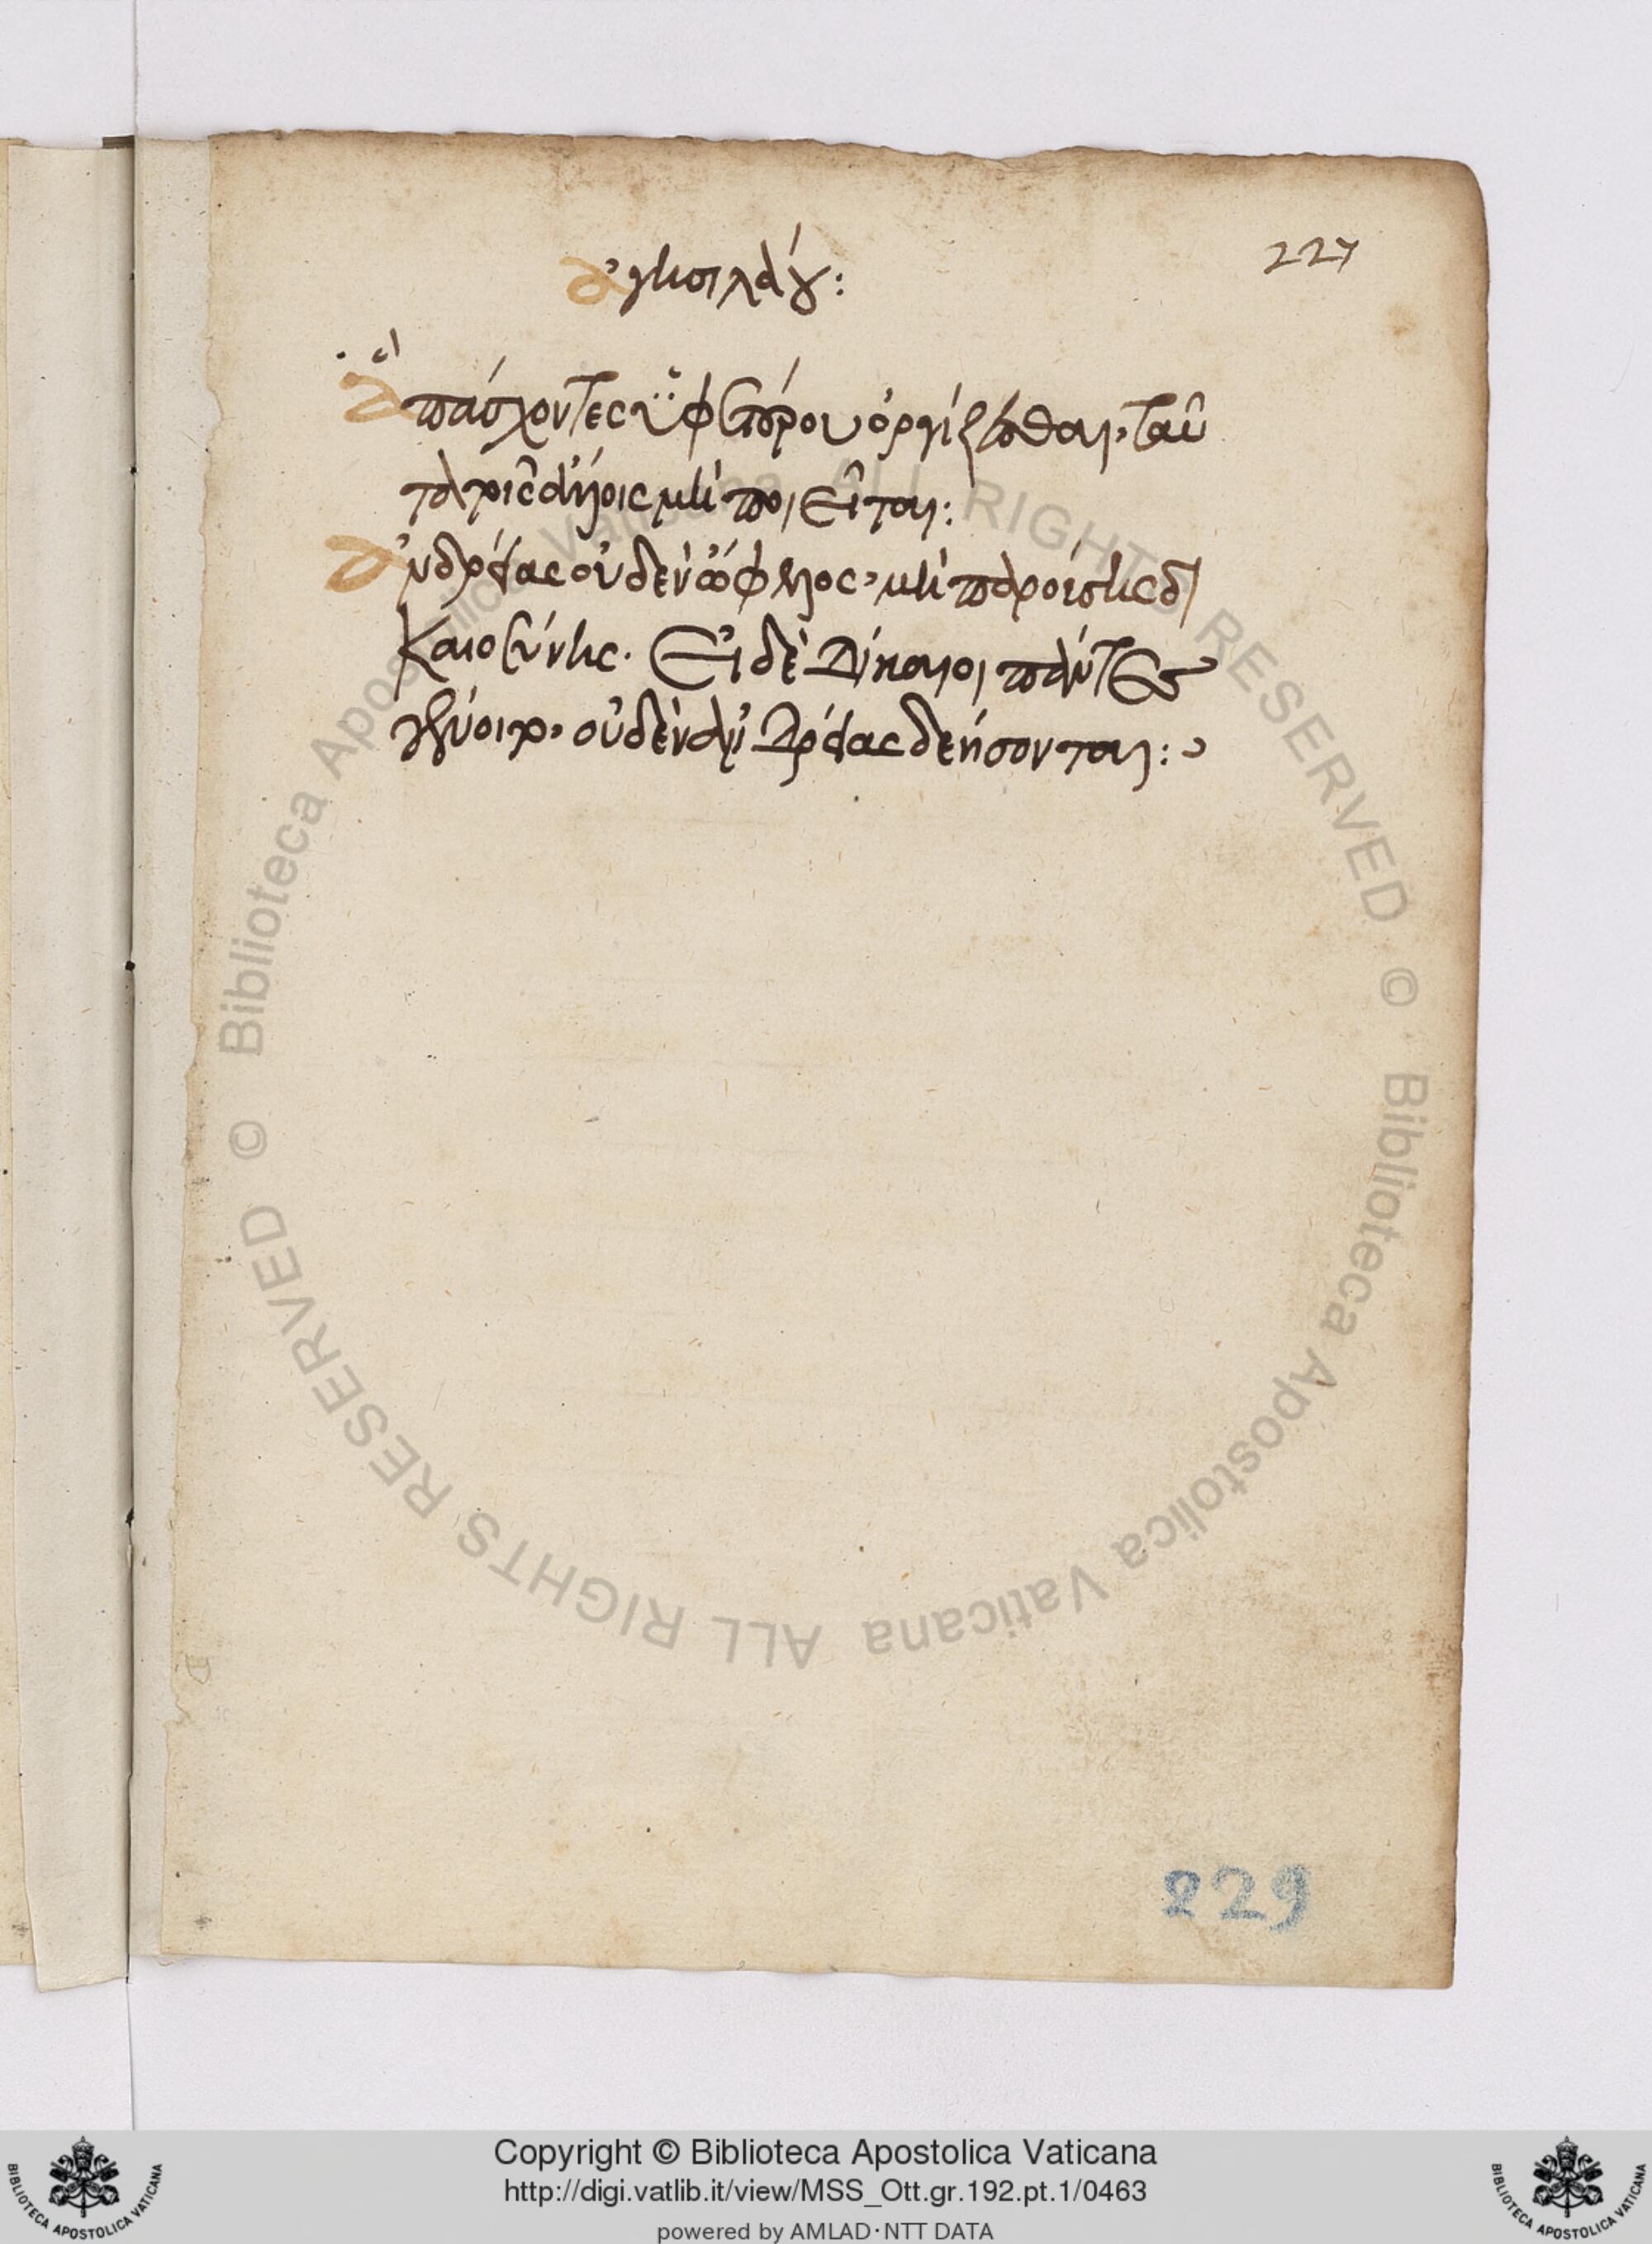 227
ἀγησιλάου:
ἃ
πάσχοντες ὑφ' ἑτέρου ὀργίζεσθαι, ταῦ
τα τοῖς ἄλλοις μὴ ποιεῖται:
ἀνδρείας οὐδὲν ὄφελος, μὴ παρούσης δι
καιοσύνης. εἰ δὲ δίκαιοι πάντες
γένοιντο, οὐδὲν ἀνδρείας δεήσονται:
229
© Biblioteca Apostolica Vaticana ALL RIGHTS RESERVED © Biblioteca Apostolica Vaticana ALL RIGHTS RESERVED
Copyright © Biblioteca Apostolica Vaticana
http://digi.vatlib.it/view/MSS_Ott.gr.192.pt.1/0463
powered by AMLAD·NTT DATA
BIBLIOTECA APOSTOLICA VATICANA
BIBLIOTECA APOSTOLICA VATICANA